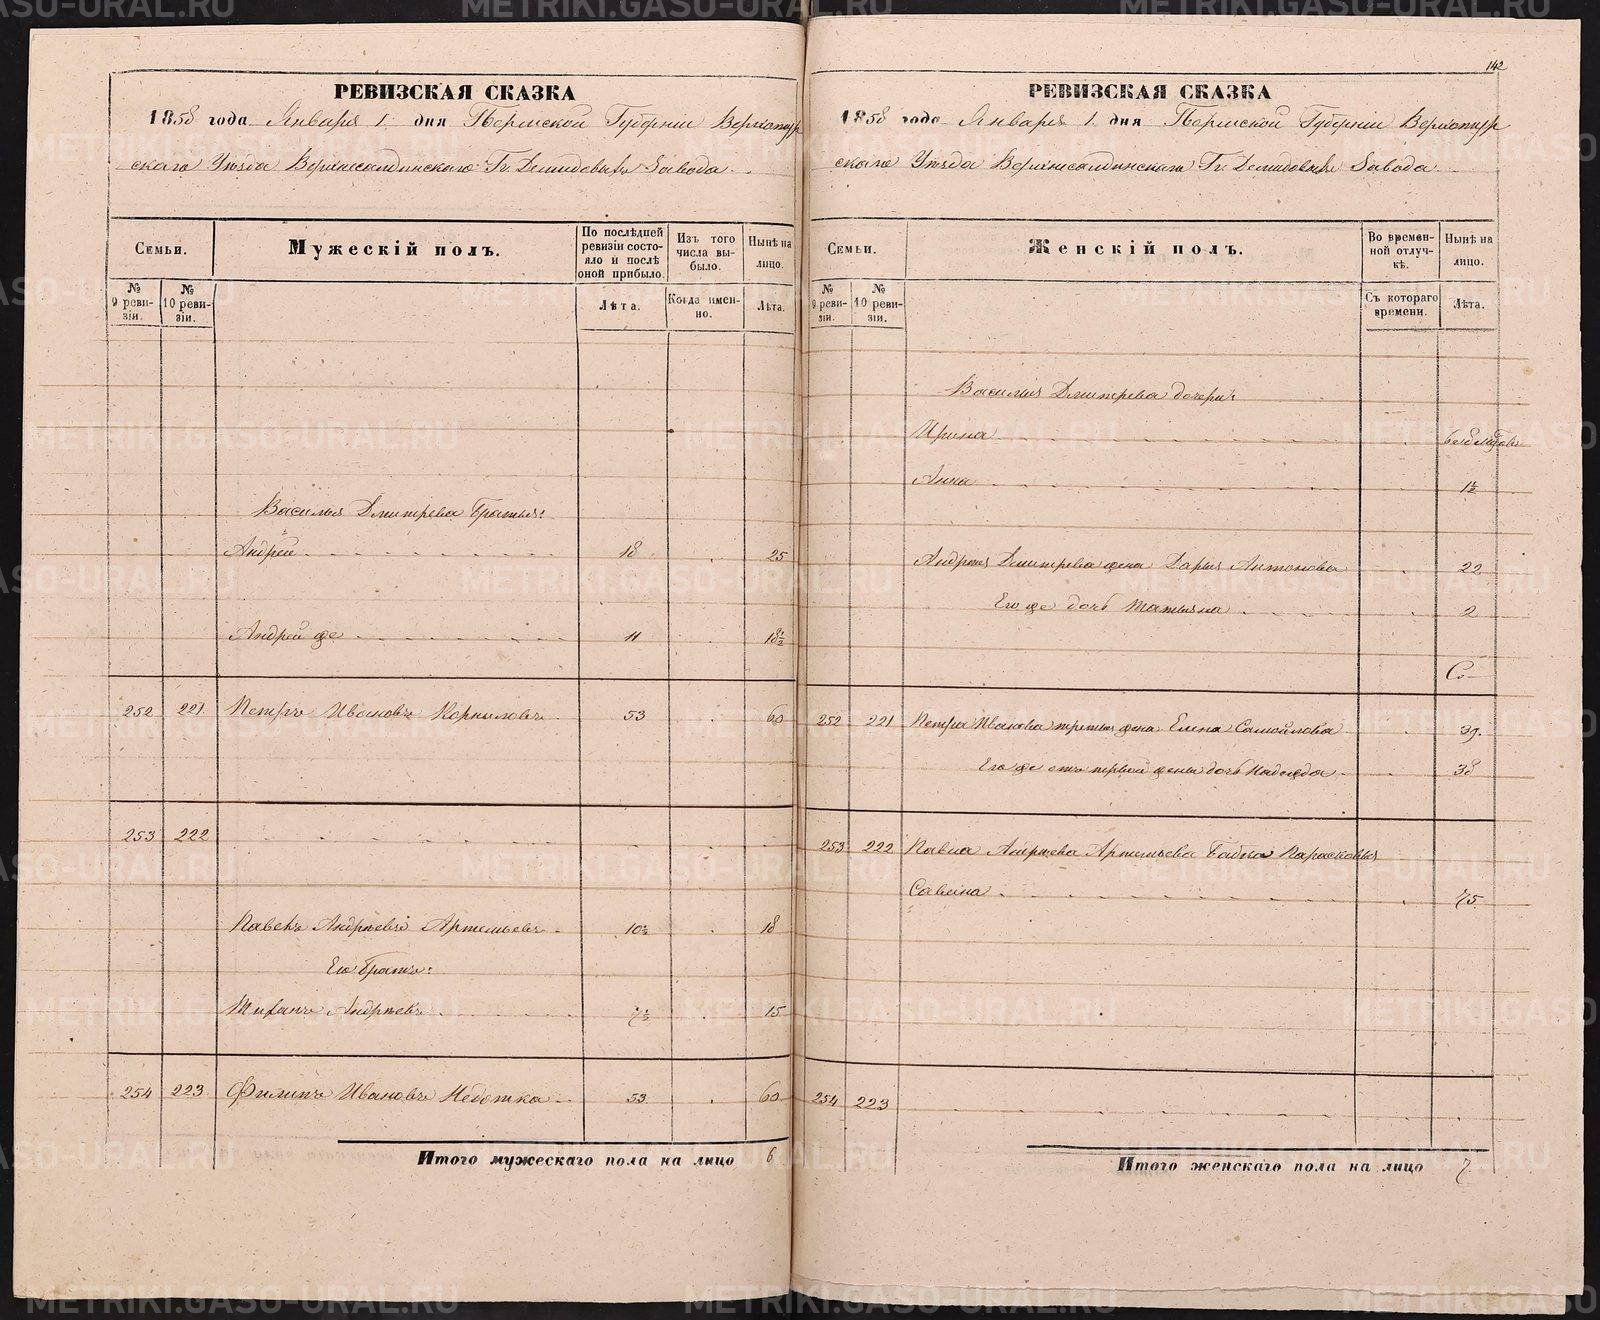 РЕВИЗСКАЯ СКАЗКА
1858 года Января 1 дня Пермской Губерніи Верхотур
скаго Уѣзда Верхнесалдинскаго Гг. Демидовыхъ Завода.
Семьи.
Мужескій полъ.
По послѣдней ревизіи состояло и послѣ оной прибыло.
Изъ того числа выбыло.
Нынѣ на лицо.
№ 9 ревизіи.
№ 10 ревизіи.
Лѣта.
Когда именно.
Лѣта.
Василья Дмитрева братья:
Андрей 18 25
Андрей же 11 18½
252 221 Петръ Ивановъ Корниловъ 53 60
253 222
Павелъ Андреевъ Артемьевъ 10½ 18
Его братъ:
Тихонъ Андреевъ 7½ 15
254 223 Филипъ Ивановъ Недотка 53 60
Итого мужескаго пола на лицо 6
142
РЕВИЗСКАЯ СКАЗКА
1858 года Января 1 дня Пермской Губерніи Верхотур
скаго Уѣзда Верхнесалдинскаго Гг. Демидовыхъ Завода
Семьи.
Женскій полъ.
Во временной отлучкѣ.
Нынѣ на лицо.
№ 9 ревизіи.
№ 10 ревизіи.
Съ котораго времени.
Лѣта.
Василья Дмитрева дочери:
Ирина
Анна 1½
Андрея Дмитрева жена Дарья Антонова 22
Его же дочь Татьяна 2
252 221 Петра Иванова третья жена Елена Самойлова 39.
Его же отъ первой жены дочь Надежда 38
253 222 Павла Андреева Артемьева бабка Парасковья
Савина 75
254 223
Итого женскаго пола на лицо 7
METRIKI.GASO-URAL.RU